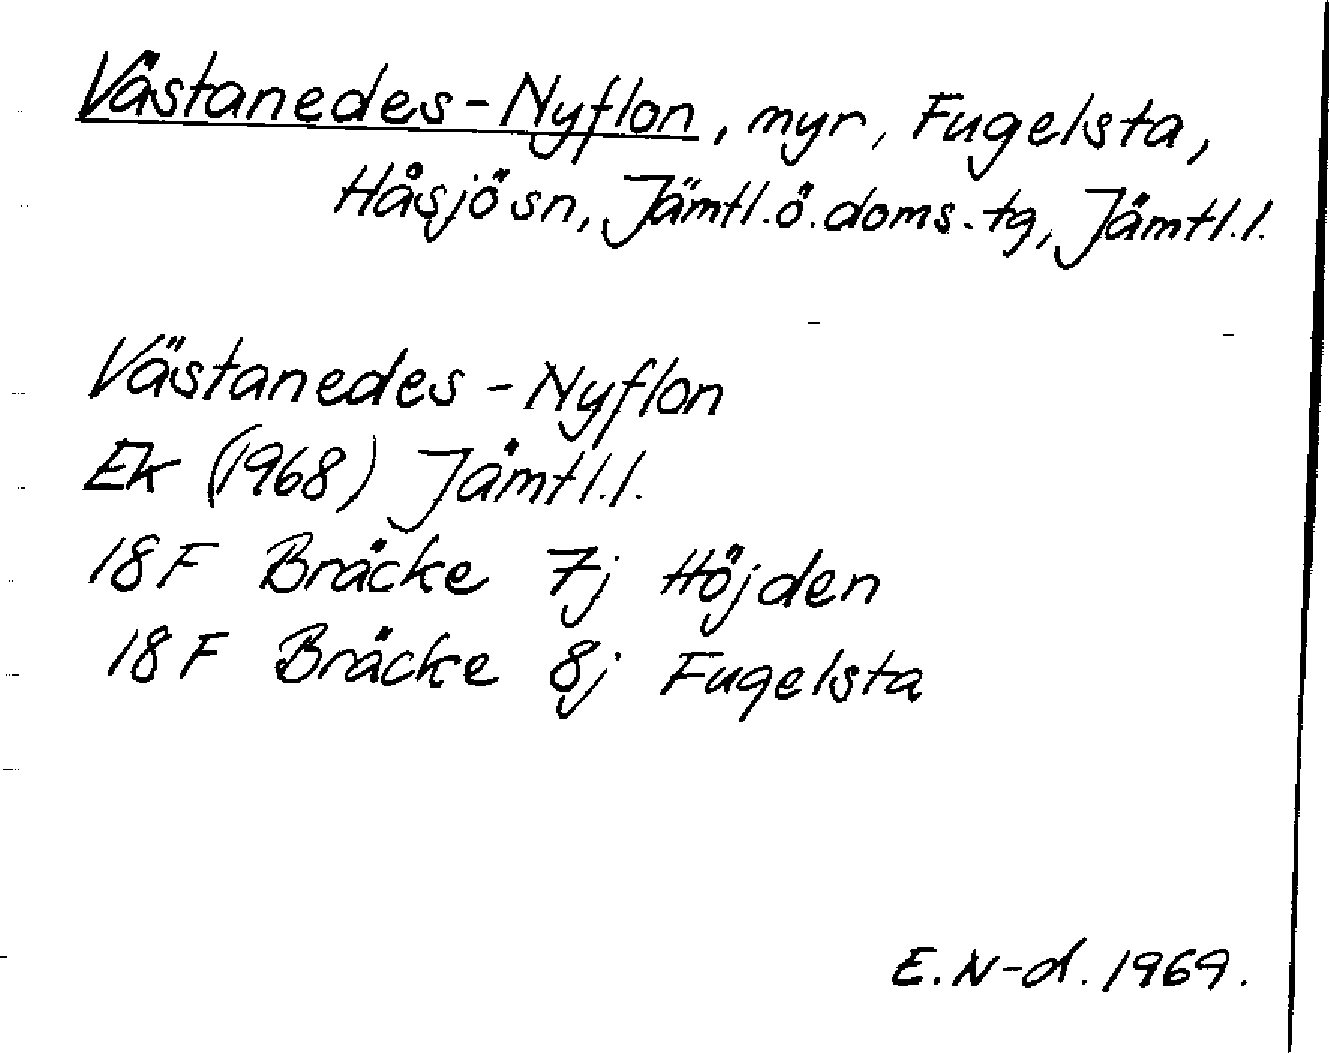 Västanedes-Nyflon, myr, Fugelsta,
Håsjö sn, Jämtl.ö.doms.tg, Jämtl.l.
Västanedes-Nyflon
Ek (1968) Jämtl.l.
18F Bräcke 7j Höjden
18F Bräcke 8j Fugelsta
E.N-d. 1969.